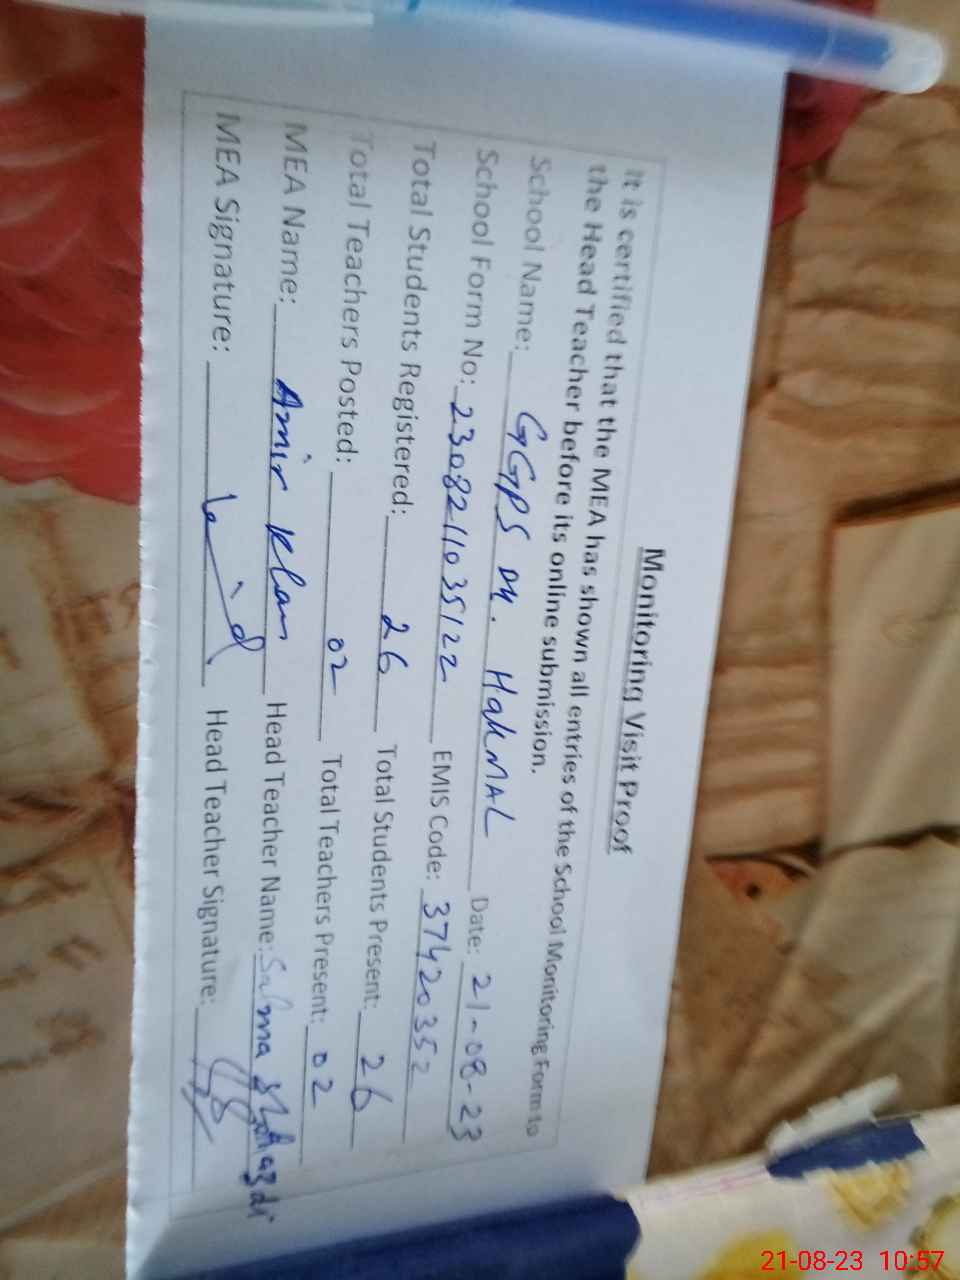 Monitoring Visit Proof
It is certified that the MEA has shown all entries of the School Monitoring Form to
the Head Teacher before its online submission.
School Name: GGPS DM. HakMAL Date: 21-08-23
School Form No: 2308211035122 EMIS Code: 37420352
Total Students Registered: 26 Total Students Present: 26
Total Teachers Posted: 02 Total Teachers Present: 02
MEA Name: Amir Khan Head Teacher Name: Salma
MEA Signature: Head Teacher Signature:
21-08-23 10:57